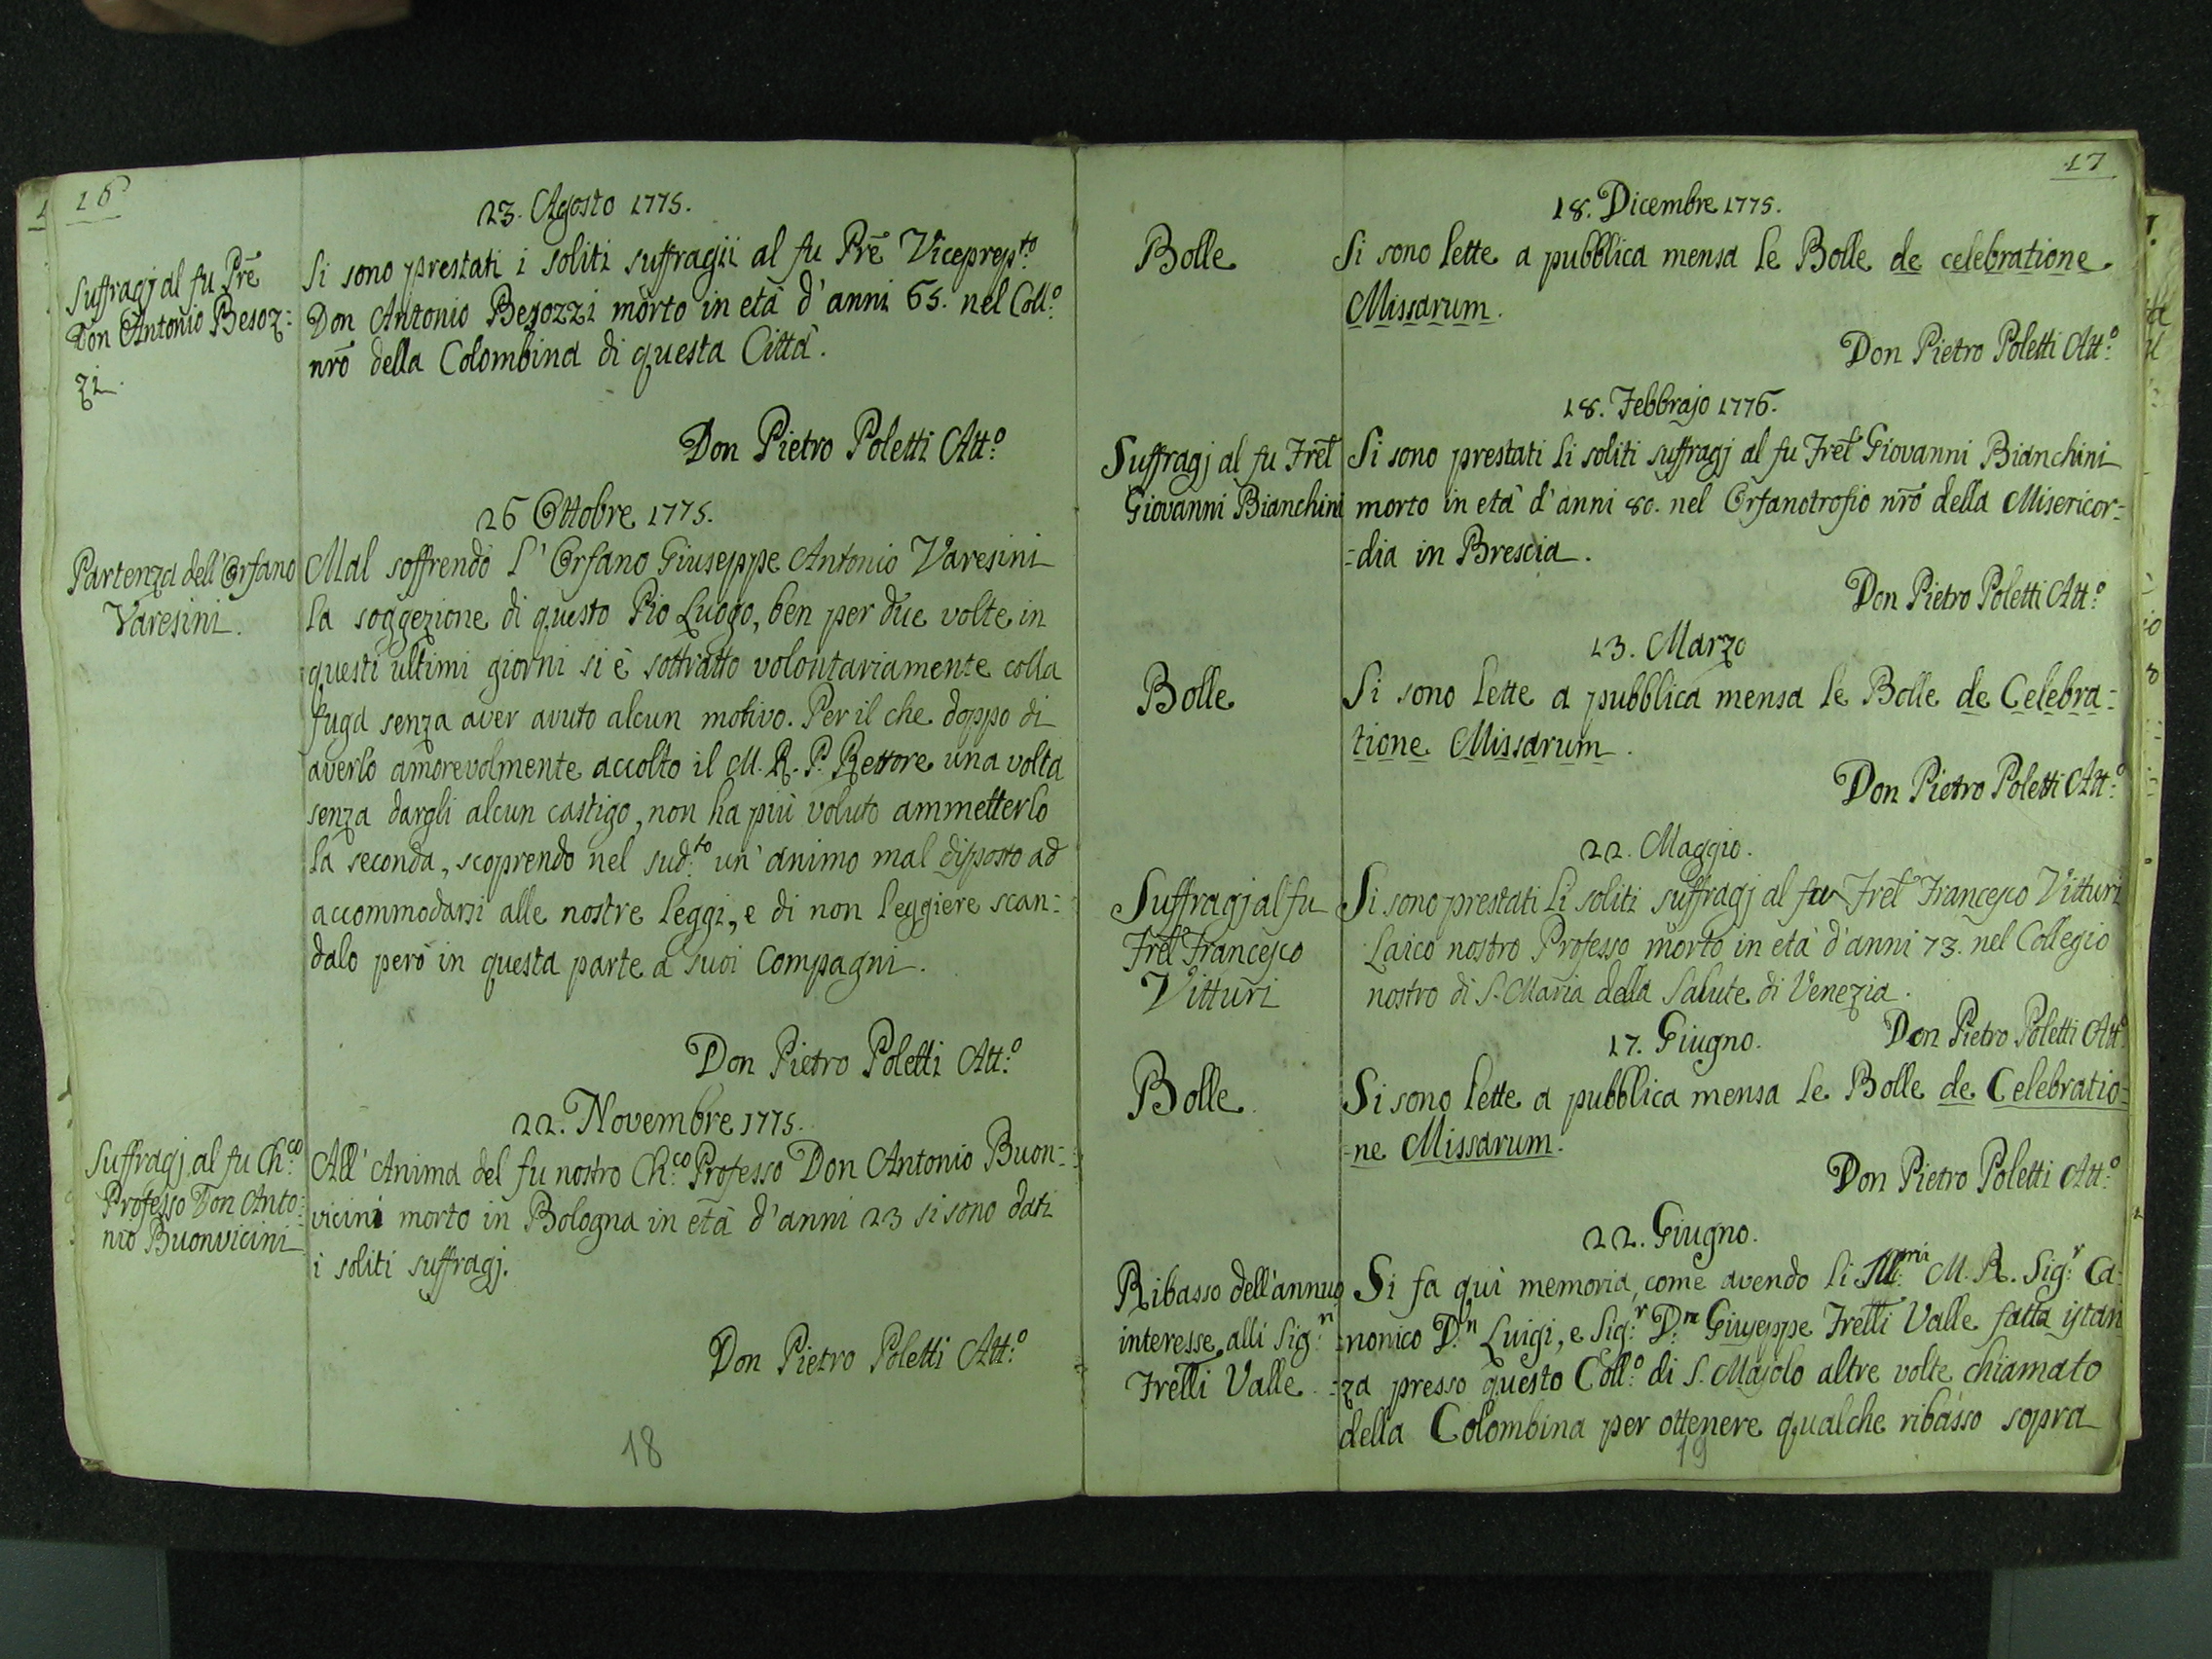 16
23. Agosto 1775.
Suffragj al fu Prē
Don Antonio Besoz:
zi.
Si sono prestati i soliti suffragii al fu Prē Viceprep.to
Don Antonio Besozzi morto in età d'anni 65. nel Coll.o
nrō della Colombina di questa Città.
Don Pietro Poletti Att.o
26 Ottobre 1775.
Partenza dell'Orfano
Varesini.
Mal soffrendo l'Orfano Giuseppe Antonio Varesini
la soggezione di questo Pio Luogo, ben per due volte in
questi ultimi giorni si è sottratto volontariamente colla
fuga senza aver avuto alcun motivo. Per il che doppo di
averlo amorevolmente accolto il M. R. P. Rettore una volta
senza dargli alcun castigo, non ha più voluto ammetterlo
la seconda, scoprendo nel sud.to un'animo mal disposto ad
accommodarsi alle nostre leggi, e di non leggiere scan:
dalo però in questa parte a' suoi Compagni.
Don Pietro Poletti Att.o
22. Novembre 1775.
Suffragj al fu Ch.co
Professo Don Anto:
nio Buonvicini
All'Anima del fu nostro Ch.co Professo Don Antonio Buon:
vicini morto in Bologna in età d'anni 23 si sono dati
i soliti suffragj.
Don Pietro Poletti Att.o
18
17
18. Dicembre 1775.
Bolle
Si sono lette a pubblica mensa le Bolle de celebratione
Missarum.
Don Pietro Poletti Att.o
18. Febbrajo 1776.
Suffragj al fu Frel̄
Giovanni Bianchini
Si sono prestati li soliti suffragj al fu Frel̄ Giovanni Bianchini
morto in età d'anni 80. nel Orfanotrofio nrō della Misericor:
=dia in Brescia.
Don Pietro Poletti Att.o
13. Marzo
Bolle
Si sono lette a pubblica mensa le Bolle de Celebra:
tione Missarum.
Don Pietro Poletti Att.o
22. Maggio.
Suffragj al fu
Frel̄ Francesco
Vitturi
Si sono prestati li soliti suffragj al fu Frel̄ Francesco Vitturi
Laico nostro Professo morto in età d'anni 73. nel Collegio
nostro di S. Maria della Salute di Venezia.
Don Pietro Poletti Att.o
17. Giugno.
Bolle
Si sono lette a pubblica mensa le Bolle de Celebratio:
=ne Missarum.
Don Pietro Poletti Att.o
22. Giugno.
Ribasso dell'annuo
interesse alli Sig.ri
Frelli Valle
Si fa quì memoria, come avendo li Ill.mi M. R. Sig.r Ca:
=nonico D.n Luigi, e Sig.r D.n Giuseppe Frelli Valle fatta istan
=za presso questo Coll.o di S. Majolo altre volte chiamato
della Colombina per ottenere qualche ribasso sopra
19